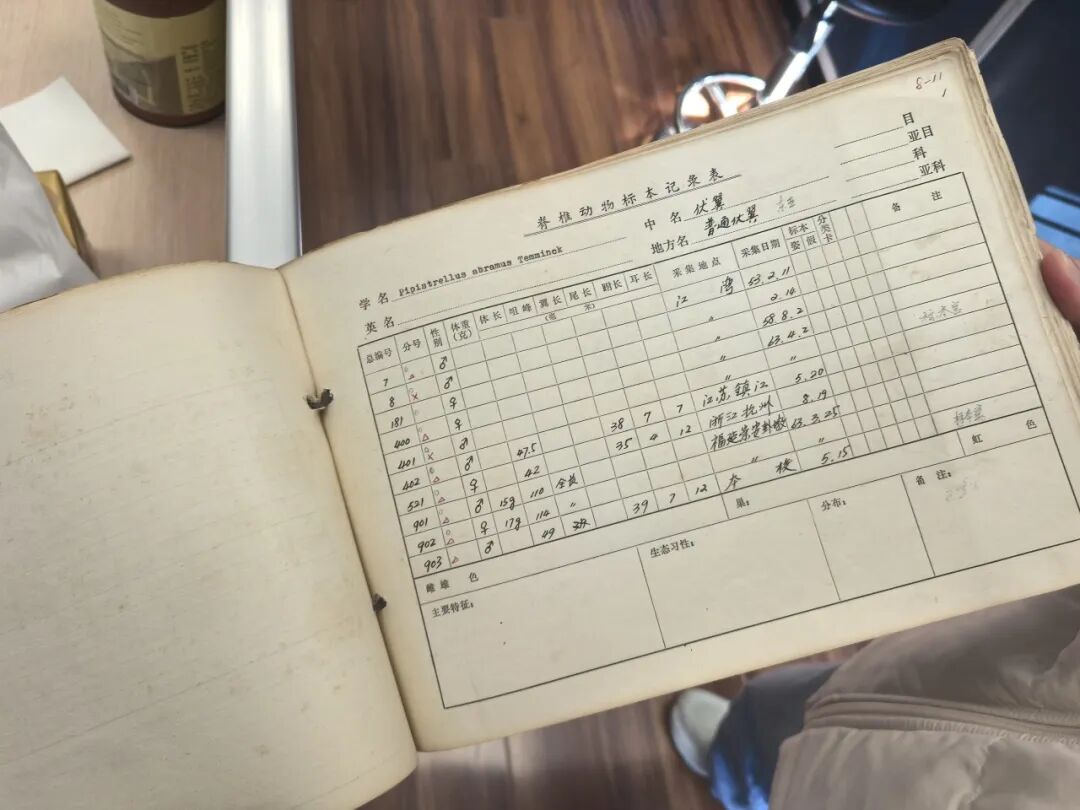 8-11
1
目
亚目
科
亚科
脊椎动物标本记录表
学名 Pipistrellus abramus Temminck 中名 伏翼
英名 地方名 普通伏翼
总编号 分号 性别 体重(克) 体长 咀峰 翼长 尾长 跗长 耳长 (毫米) 采集地点 采集日期 标本 姿 假 分类卡 备注
7 △ ♂ 江湾 53.2.11
8 x ♂ 〃 2.14
181 ♀ 〃 58.8.2
400 △ ♀ 〃 63.4.2
401 x ♂ 47.5 38 7 7 〃 〃
402 △ ♂ 42 35 4 12 江苏镇江 5.20
521 △ ♀ 浙江杭州 8.19
901 △ ♂ 15g 110 全长 63.3.25
902 △ ♀ 17g 114 〃 〃 〃
903 △ ♂ 49 39 7 12 本校 5.15
雌雄 色 虹 色
主要特征: 生态习性: 巢: 分布: 备注: